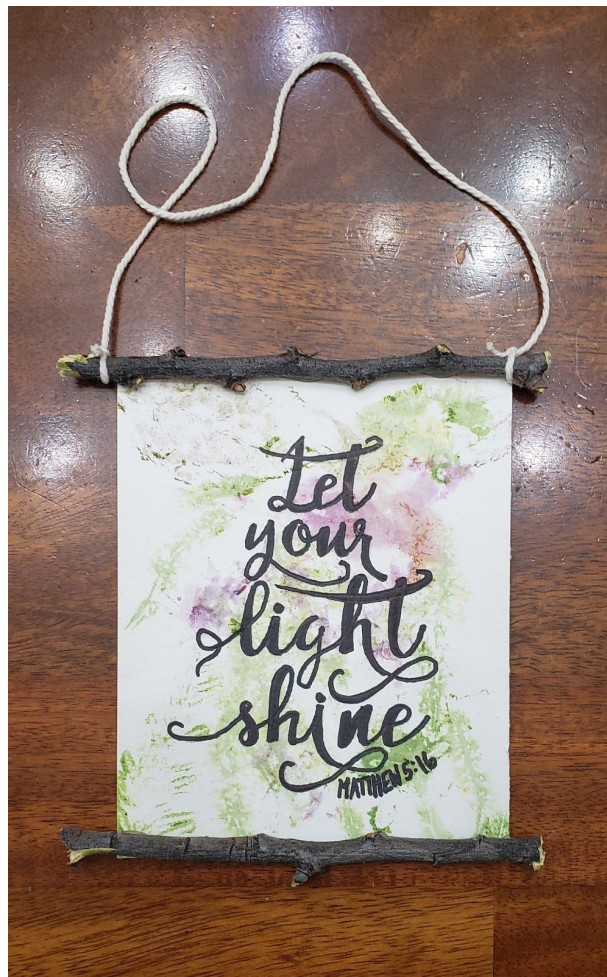 Let
your
light
shine
MATTHEW 5:16